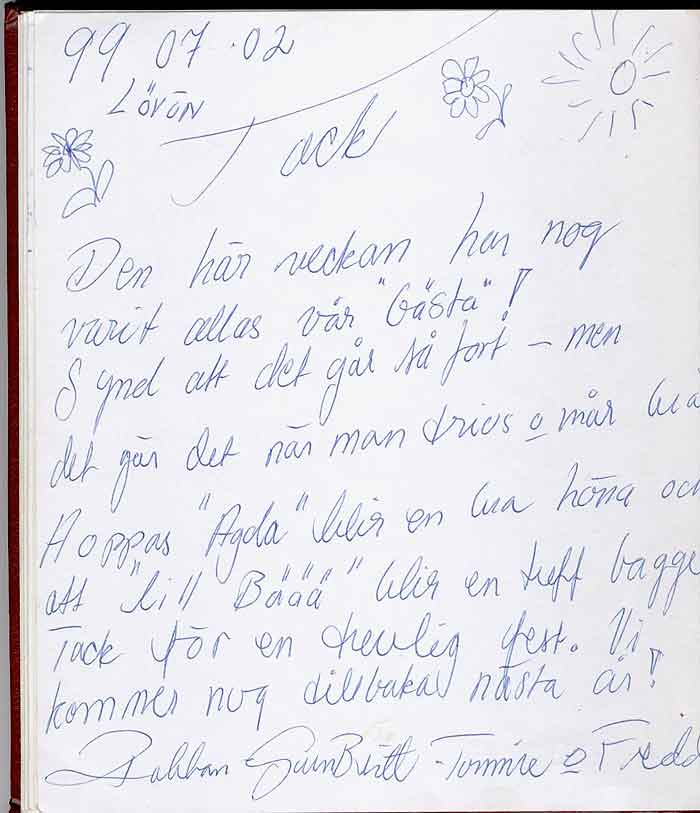 99 07.02
Lövön
Tack
Den här veckan har nog
varit allas vår "bästa"!
Synd att det går så fort – men
det gör det när man trivs o mår bra
Hoppas "Agda" blir en bra höna och
att "lill Bäää" blir en tuff bagge
Tack för en trevlig fest. Vi
kommer nog tillbaka nästa år!
Robban GunBritt - Tommie o Fredd